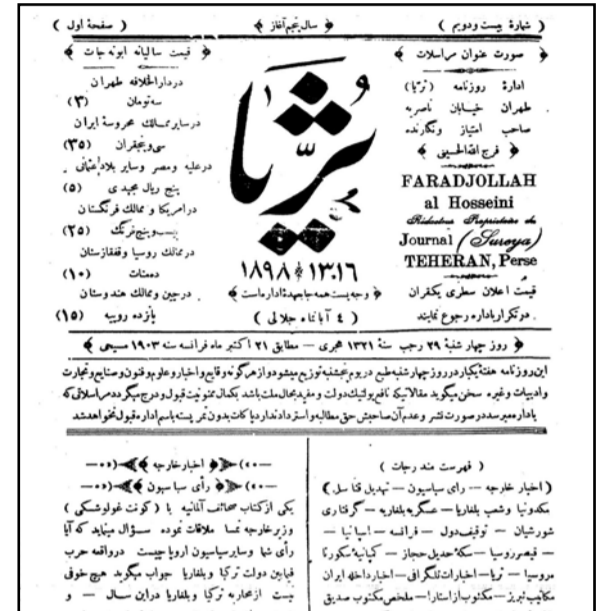 ( شمارهٔ بیست ودویم )
﴿ سال پنجم آغاز ﴾
( صفحهٔ اول )
﴿ صورت عنوان مراسلات ﴾
ادارهٔ روزنامه (ثریّا)
طهران خیابان ناصریه
صاحب امتیاز ونگارنده
﴿ فرج الله الحسینی ﴾
FARADJOLLAH
al Hosseini
Rédacteur Propriétaire du
Journal (Sureya)
TEHERAN, Perse
قیمت اعلان سطری یکقران
درتکرار باداره رجوع نمایند
ثریّا
۱۳۱۶ ۱۸۹۸
﴿ وجه پست همه جا بعهدهٔ اداره است ﴾
( ٤ آبانماه جلالی )
﴿ قیمت سالیانه ابونه جات ﴾
دردارالخلافه طهران
سه تومان (۳)
درسایر ممالك محروسهٔ ایران
سی وپنجقران (۳۵)
درعلیه ومصر وسایر بلاد عثمانی
پنج ریال مجیدی (۵)
درامریکا و ممالك فرنگستان
بیست وپنج فرنگ (۲۵)
درممالك روسیا و قفقازستان
ده منات (۱۰)
درچین وممالك هندوستان
پانزده روپیه (۱۵)
﴿ روز چهار شنبهٔ ۲۹ رجب سنهٔ ۱۳۲۱ هجری — مطابق ۲۱ اکتبر ماه فرانسه سنه ۱۹۰۳ مسیحی ﴾
این روزنامه هفتهٔ یکبار در روز چهارشنبه طبع در یوم پنجشنبه توزیع میشود واز هرگونه وقایع واخبار وعلوم وفنون وصنایع وتجارت
وادبیات وغیره سخن میگوید مقالاتیکه نافع پولتیك دولت و مفید بحال ملت باشد بکمال ممنونیت قبول ودرج میگردد مراسلاتی که
باداره میرسد در صورت نشر وعدم آن صاحبش حق مطالبه واسترداد ندارد پاکات بدون تمر پسته باسم اداره قبول نخواهد شد
( فهرست مندرجات )
( اخبار خارجه — رای سیاسیون — تهدیل قناسل )
مکدونیا وشب بلغاریا — عسگریه بلغاریه — گرفتاری
شورشیان — توقیف دول — فرانسه — اسپانیا —
— قیصر روسیا — سکهٔ حدید حجاز — کپانیهٔ سکورتا
روسیا — ثریا — اخبارات تلگرافی — اخبار داخله ایران
مکاتیب تبریز — مکتوب از استارا — ملخص مکتوب صدیق
﴿ اخبار خارجه ﴾
﴿ رأی سیاسیون ﴾
یکی از کتاب صحائف آلمانیه با ( کونت غولوشسکی )
وزیر خارجه نمسا ملاقات نموده سؤال مینماید که آیا
رأی شما وسایر سیاسیون اروپا چیست درواقعه حرب
فیمابین دولت ترکیا وبلغاریا جواب میگوید هیچ خوفی
نیست از محاربه ترکیا وبلغاریا دراین سال — و